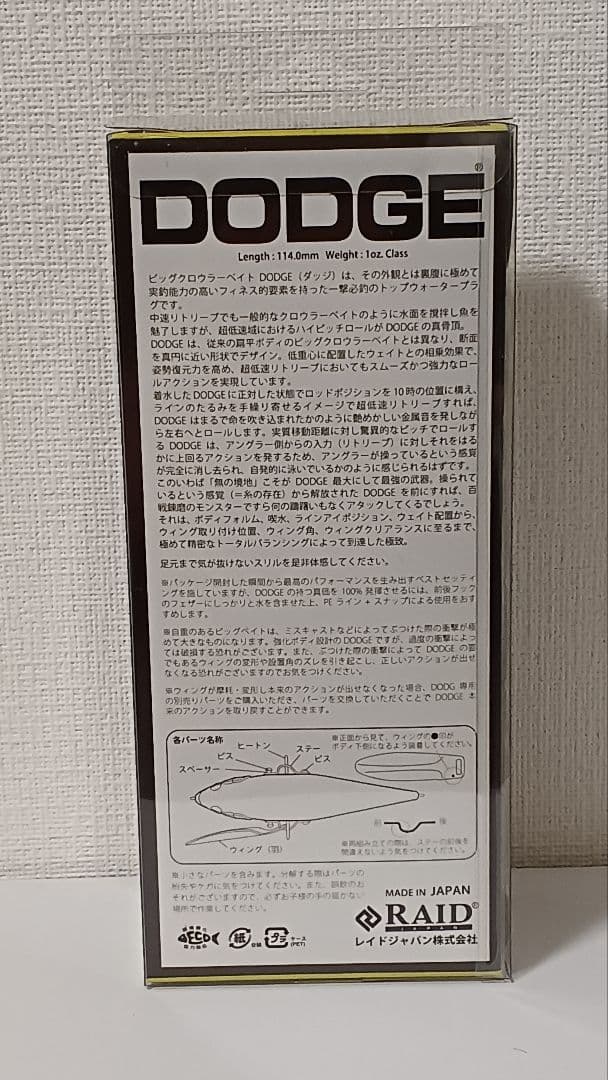 DODGE®
Length : 114.0mm Weight : 1oz. Class
ビッグクロウラーベイト DODGE（ダッジ）は、その外観とは裏腹に極めて
実釣能力の高いフィネス的要素を持った一撃必釣のトップウォータープラ
グです。
中速リトリーブでも一般的なクロウラーベイトのように水面を撹拌し魚を
魅了しますが、超低速域におけるハイピッチロールが DODGE の真骨頂。
DODGE は、従来の扁平ボディのビッグクロウラーベイトとは異なり、断面
を真円に近い形状でデザイン。低重心に配置したウェイトとの相乗効果で、
姿勢復元力を高め、超低速リトリーブにおいてもスムーズかつ強力なロー
ルアクションを実現しています。
着水した DODGE に正対した状態でロッドポジションを 10 時の位置に構え、
ラインのたるみを手繰り寄せるイメージで超低速リトリーブすれば、
DODGE はまるで命を吹き込まれたかのように艶めかしい金属音を発しなが
ら左右へとロールします。実質移動距離に対し驚異的なピッチでロールす
る DODGE は、アングラー側からの入力（リトリーブ）に対しそれをはるか
に上回るアクションを発するため、アングラーが操っているという感覚
が完全に消し去られ、自発的に泳いでいるかのように感じられるはずです。
このいわば「無の境地」こそが DODGE 最大にして最強の武器。操られて
いるという感覚（＝糸の存在）から解放された DODGE を前にすれば、百
戦錬磨のモンスターですら何の躊躇いもなくアタックしてくるでしょう。
それは、ボディフォルム、喫水、ラインアイポジション、ウェイト配置から、
ウィング取り付け位置、ウィング角、ウィングクリアランスに至るまで、
極めて精密なトータルバランシングによって到達した極致。
足元まで気が抜けないスリルを是非体感してください。
※パッケージ開封した瞬間から最高のパフォーマンスを生み出すベストセッティン
グを施していますが、DODGE の持つ真価を 100% 発揮させるには、前後フック
のフェザーにしっかりと水を含ませた上、PE ライン + スナップによる使用をおす
すめします。
※自重のあるビッグベイトは、ミスキャストなどによってぶつけた際の衝撃が極
めて大きなものになります。強化ボディ設計の DODGE ですが、過度の衝撃によっ
ては破損する恐れがございます。また、ぶつけた際の衝撃によって DODGE の要
でもあるウィングの変形や設置角のズレを引き起こし、正しいアクションが出せ
なくなる恐れがございますのでお気をつけください。
※ウィングが摩耗・変形し本来のアクションが出せなくなった場合、DODG 専用
の別売りパーツをご購入いただき、パーツを交換していただくことで DODGE 本
来のアクションを取り戻すことができます。
各パーツ名称
ヒートン
ステー
ビス
ビス
スペーサー
ウィング（羽）
※正面から見て、ウィングの●印が
ボディ下側になるよう装着してください。
前
後
※再組み立ての際は、ステーの前後を
間違えないよう気をつけてください。
※小さなパーツを含みます。分解する際はパーツの
紛失やケガに気をつけてください。また、誤飲のお
それがございますので、必ずお子様の手の届かない
場所で作業してください。
MADE IN JAPAN
RAID®
JAPAN
レイドジャパン株式会社
ECO
紙
台紙
プラ
ケース
(PET)